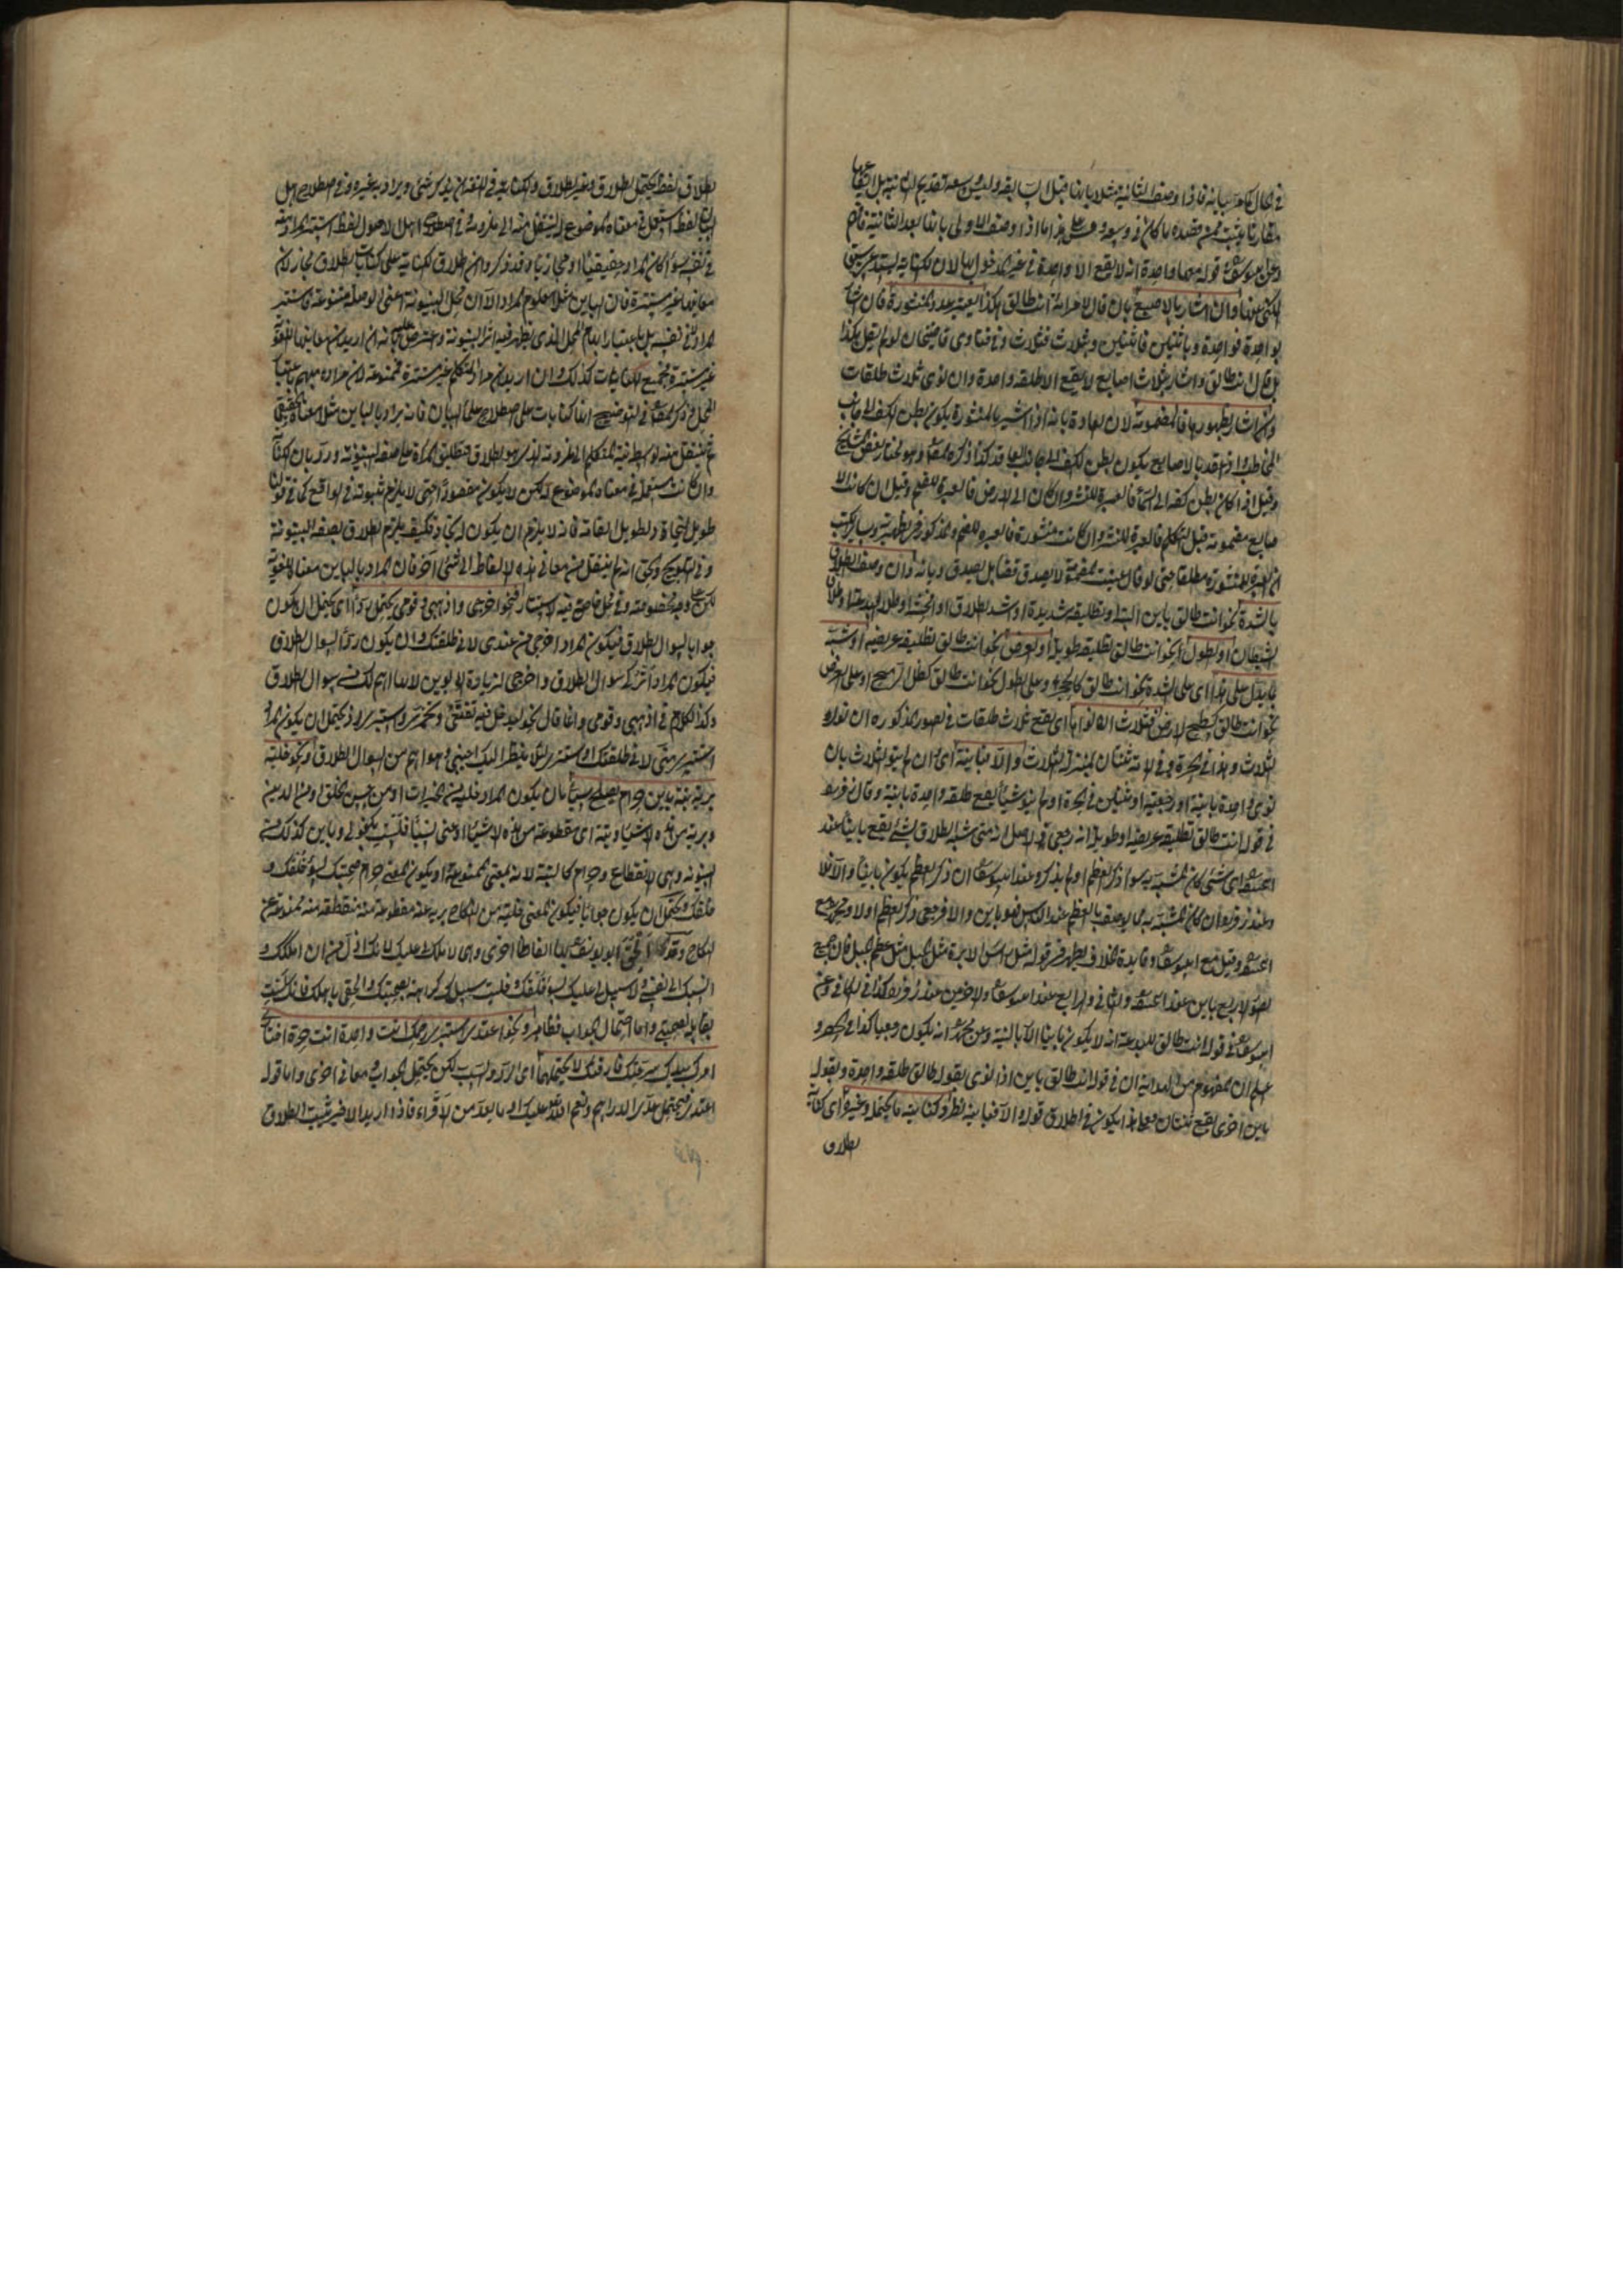 في الحال كامر بيانه فاذا وصف الثانية مثلا بانها قبل السابقة وليس في وسعه تقديم الثانية بل ايقاعها
مقارنا يثبت من قصده ما كان في وسعه وعلى هذا ما اذا وصف الاولى بانها بعد الثانية فافهم
وعن قوله معها واحدة انه لا يقع الا واحدة في غير المدخول بها لان الكناية يستدعي سبق
المكنى عنها وان اشار بالاصبع بان قال لامرأته انت طالق هكذا يعتبر عدد المنشورة فان اشار
بواحدة فواحدة وباثنتين فاثنتين وبثلاث فثلاث وفي فتاوى قاضيخان لو لم يقل هكذا
بل قال انت طالق واشار بثلاث اصابع لا يقع الا طلقة واحدة وان نوى ثلاث طلقات
وان اشار بظهورها فالمضمومة لان العادة بانه اذا اشير بالمنشورة يكون بطن الكف الى جانب
المخاطب واذا عقد بالاصابع يكون بطن الكف الى جانب العاقد كذا ذكره وهو مختار بعض المشايخ
وقيل اذا كان بطن كفه الى السماء فالعبرة للنشر وان كان الى الارض فالعبرة للضم وقيل ان كانت الا
صابع مضمومة قبل التكلم فالعبرة للنشر وان كانت منشورة فالعبرة للضم والمذكور في
ان العبرة للمنشورة مطلقا حتى لو قال عنيت المضمومة لا يصدق قضاء بل يصدق ديانة وان وصف الطلاق
بالشدة نحو انت طالق باين البتة او تطليقة شديدة او اشد الطلاق او اخبثه او طلاق البدعة او طلاق
الشيطان او الطول نحو انت طالق تطليقة طويلة او العرض نحو انت طالق تطليقة عريضة او شبه
بما يدل على هذا اى على الشدة نحو انت طالق كالجبل وعلى الطول نحو انت طالق كظل الرمح او على العرض
نحو انت طالق كسطح الارض فثلاث ان نواها اى يقع ثلاث طلقات في الصور المذكورة ان نوى
الثلاث وهذا في الحرة وفي الامة ثنتان بمنزلة الثلاث والا فباينة اى وان لم ينو الثلاث بان
نوى واحدة باينة او رجعية او ثنتين في الحرة او لم ينو شيئا يقع طلقة واحدة باينة وقال زفر
في قوله انت طالق تطليقة عريضة او طويلة انه رجعى والاصل انه متى شبه الطلاق بشئ يقع باينا عند
اى شئ كان المشبه به سواء ذكر العظم او لم يذكر وعند ان ذكر العظم يكون باينا والا فلا
وعند زفر ان كان المشبه به مما يوصف بالعظم عند الناس فهو باين والا فرجعى ذكر العظم اولا ومحمد مع
وقيل مع وفايدة الخلاف يظهر في قوله مثل رأس الابرة مثل الجبل مثل عظم الجبل فان جميع
الصور الاربع باين عند والثاني والرابع عند والاخيرين عند زفر كذا في الكافي وعن
في قوله انت طالق للبدعة انه لا يكون باينا الا بالنية وعن محمد انه يكون رجعيا كذا في
علم ان المفهوم من الهداية ان في قوله انت طالق باين اذا نوى بقوله طالق طلقة واحدة وبقوله
باين اخرى يقع ثنتان فعلى هذا يكون في اطلاق قوله والا فباينة نظر وكناية ما يحتمله وغيره اى كناية
الطلاق
الطلاق لفظ يحتمل الطلاق وغير الطلاق والكناية في اللغة ان يذكر شئ ويراد به غيره وفي اصطلاح اهل
البيان لفظ استعمل في معناه الموضوع له لينتقل منه الى ملزومه وفي اصطلاح اهل الاصول لفظ استتر المراد منه
في نفسه سواء كان المراد حقيقيا او مجازيا وقد ذكروا ان اطلاق الكناية على كنايات الطلاق مجاز لان
معانيها غير مستترة فان الباين مثلا معلوم المراد الا ان محل البينونة اعنى الوصلة متنوعة فاستتر
المراد لا في نفسه بل باعتبار ابهام المحل الذى يظهر فيه اثر البينونة واعترض عليه بانه ان اريد ان معانيها اللغوية
غير مستترة فجميع الكنايات كذلك وان اريد ان مراد المتكلم غير مستترة فممنوعة لان مراده مبهم باعتبار
المحل وذكر في التوضيح انها كنايات على اصطلاح علماء البيان فانه يراد بالباين مثلا معناه الحقيقي
ثم ينتقل منه بواسطة نية المتكلم الى ملزومه الذى هو الطلاق فتطلق المرأة على صفة البينونة ورد بان الكناية
وان كانت مستعملة في معناه الموضوع له لكن لا يكون مقصودا حتى لا يلزم ثبوته في الواقع كما في قولنا
طويل النجاد وطويل القامة فانه لا يلزم ان يكون له نجاد فكيف يلزم الطلاق بصفة البينونة
وفي التلويح والحق انه لم ينتقل من معاني هذه الالفاظ الى شئ اخر فان المراد بالباين معناه اللغوية
لكن على وجه مخصوصة وفي محل خاص فيه الاستتار فنحو اخرجى واذهبى وقومى يحتمل ردا اى يحتمل ان يكون
جوابا لسؤال الطلاق فيكون المراد اخرجى من عندى لاني طلقتك وان يكون ردا لسؤال الطلاق
فيكون المراد اتركى سؤال الطلاق واخرجى لزيارة الابوين لانها اهم لك من سؤال الطلاق
وكذا الكلام في اذهبى وقومى وانما قال نحو ليدخل فيه تقنعى وتخمرى واستترى اذ يحتمل ان يكون المراد
استترى منى لانى طلقتك او استترى لئلا ينظر اليك اجنبى وهو اهم من سؤال الطلاق ونحو خلية
برية بتة باين حرام يصلح سبا بان يكون المراد خلية من الخيرات او من حسن الخلق او من الدين
وبرية من هذه الاشياء وبتة اى مقطوعة من هذه الاشياء او عنى لست بكفو لي وباين كذلك من
البينونة وهى الانقطاع وحرام كالبتة لانه بمعنى ممنوعة او يكون بمعنى حرام صحبتك لسوء خلقك و
خلقك ويحتمل ان يكون جوابا فيكون المعنى خلية من النكاح برية عنه مقطوعة منه منقطعة منه ممنوعة عن
النكاح وقد الحق ابو يوسف بهذا الفاظا اخرى وهى لا ملك لي عليك لانك اذل من ان املكك و
انسبك الى نفسى لا سبيل لي عليك لسوء خلقك خليت سبيلك لكراهة صحبتك والحقى باهلك فانك لست
بقابلة لصحبتى واما احتمال الجواب فظاهر ونحو اعتدى استبرى رحمك انت واحدة انت حرة اختارى
امرك بيدك سرحتك فارقتك لا يحتملهما اى الرد والسب لكن يحتمل الجواب ومعاني اخرى واما قوله
اعتدى فيحتمل عد الدراهم ونعم الله عليك او ما يعد من الاقراء فاذا اريد الاخير يثبت الطلاق